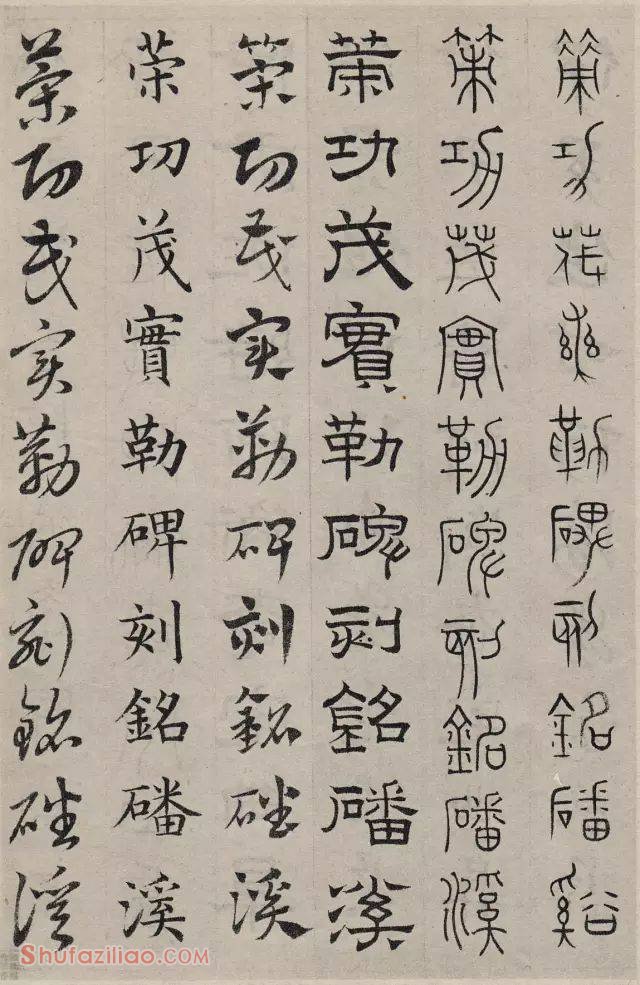 策功茂實勒碑刻銘磻谿
策功茂實勒碑刻銘磻溪
策功茂實勒碑刻銘磻溪
策功茂实勒碑刻銘磻溪
策功茂實勒碑刻銘磻溪
策功茂实勒碑刻銘磻溪
Shufaziliao.com